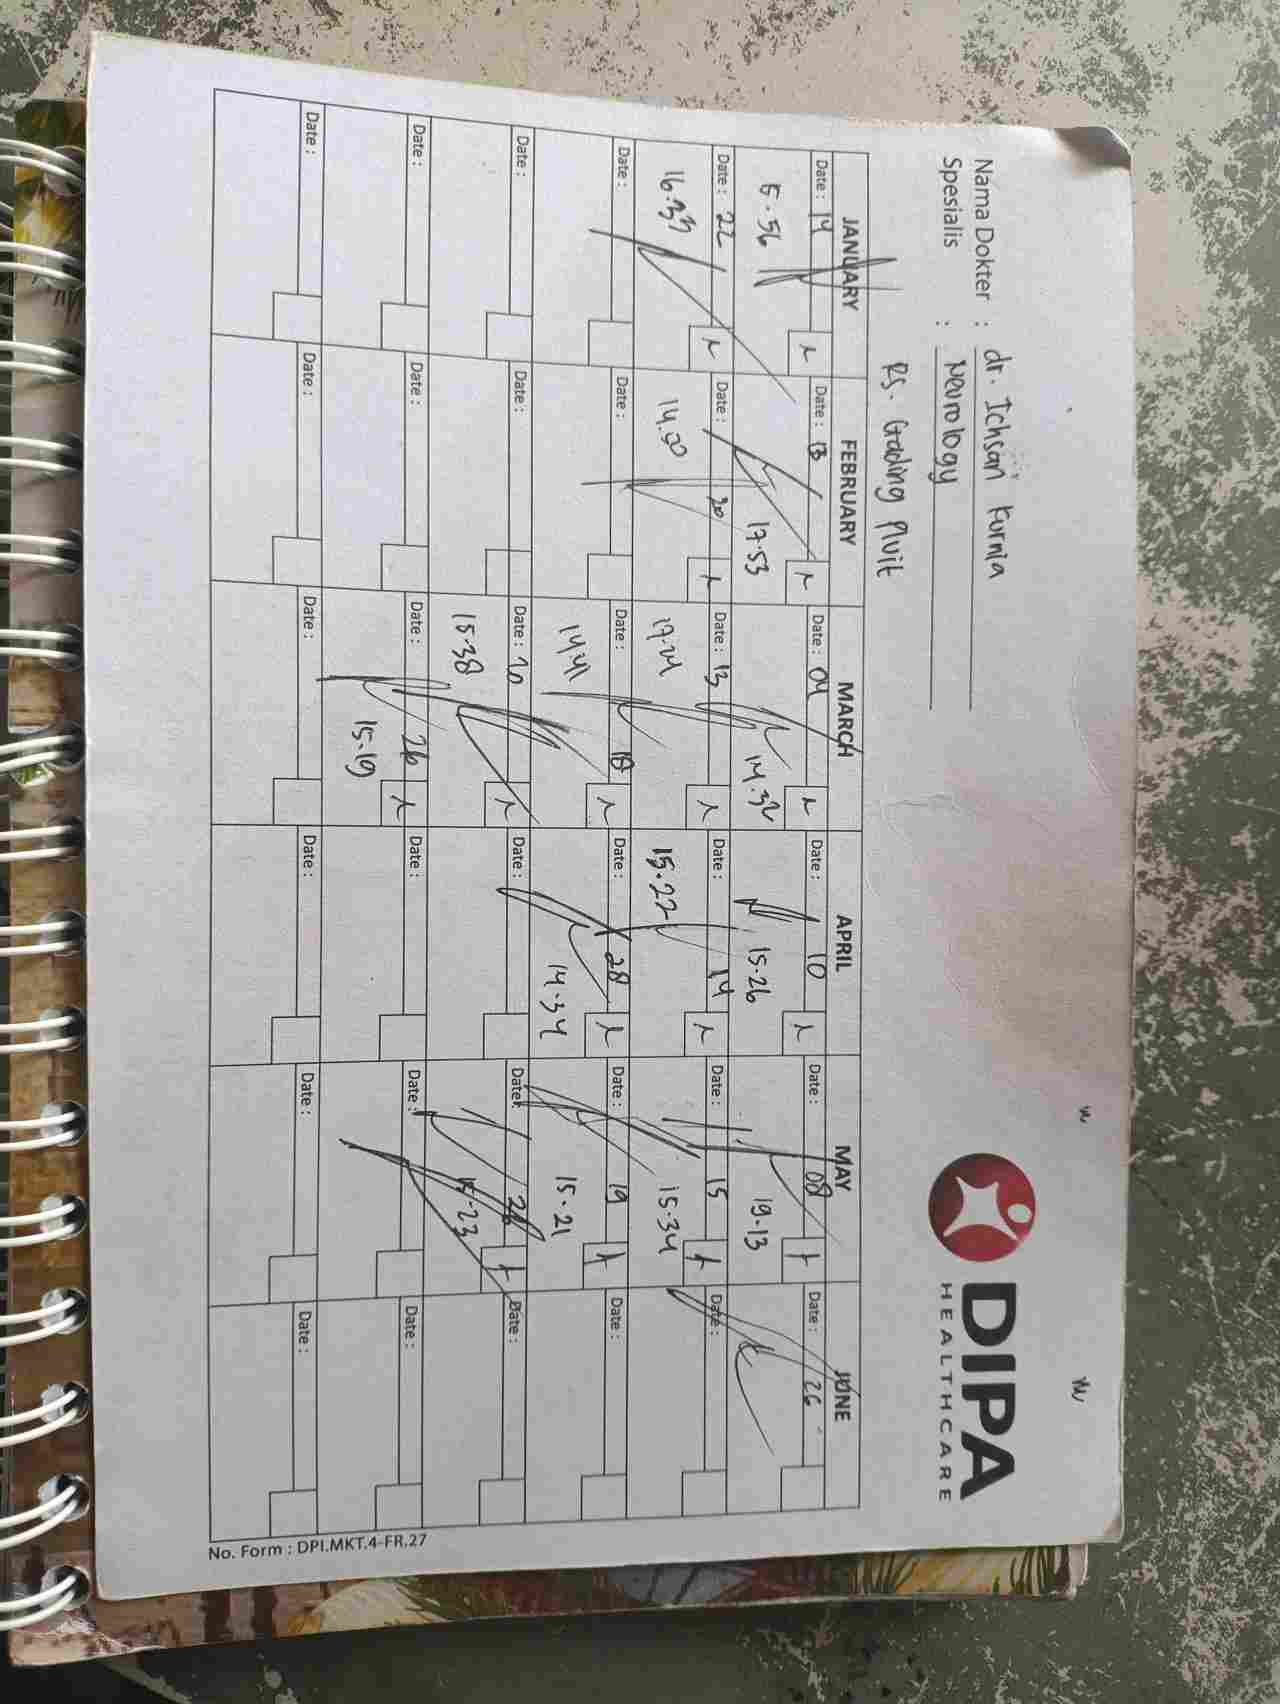 Nama Dokter : dr. Ichsan Kurnia
Spesialis : Neurology
RS. Gading Pluit
DIPA
HEALTHCARE
JANUARY FEBRUARY MARCH APRIL MAY JUNE
Date : 14 Date : 13 Date : 04 Date : 10 Date : 08 Date : 26
5.56 17.53 14.32 15.26 19.13
Date : 22 Date : 20 Date : 13 Date : 14 Date : 15 Date :
16.33 14.00 17.24 15.22 15.34
Date : Date : Date : 18 Date : 28 Date : 19 Date :
14.41 14.34 15.21
Date : Date : Date : 20 Date : Date : 26 Date :
15.38 15.23
Date : Date : Date : 26 Date : Date : Date :
15.19
Date : Date : Date : Date : Date : Date :
No. Form : DPI.MKT.4-FR.27